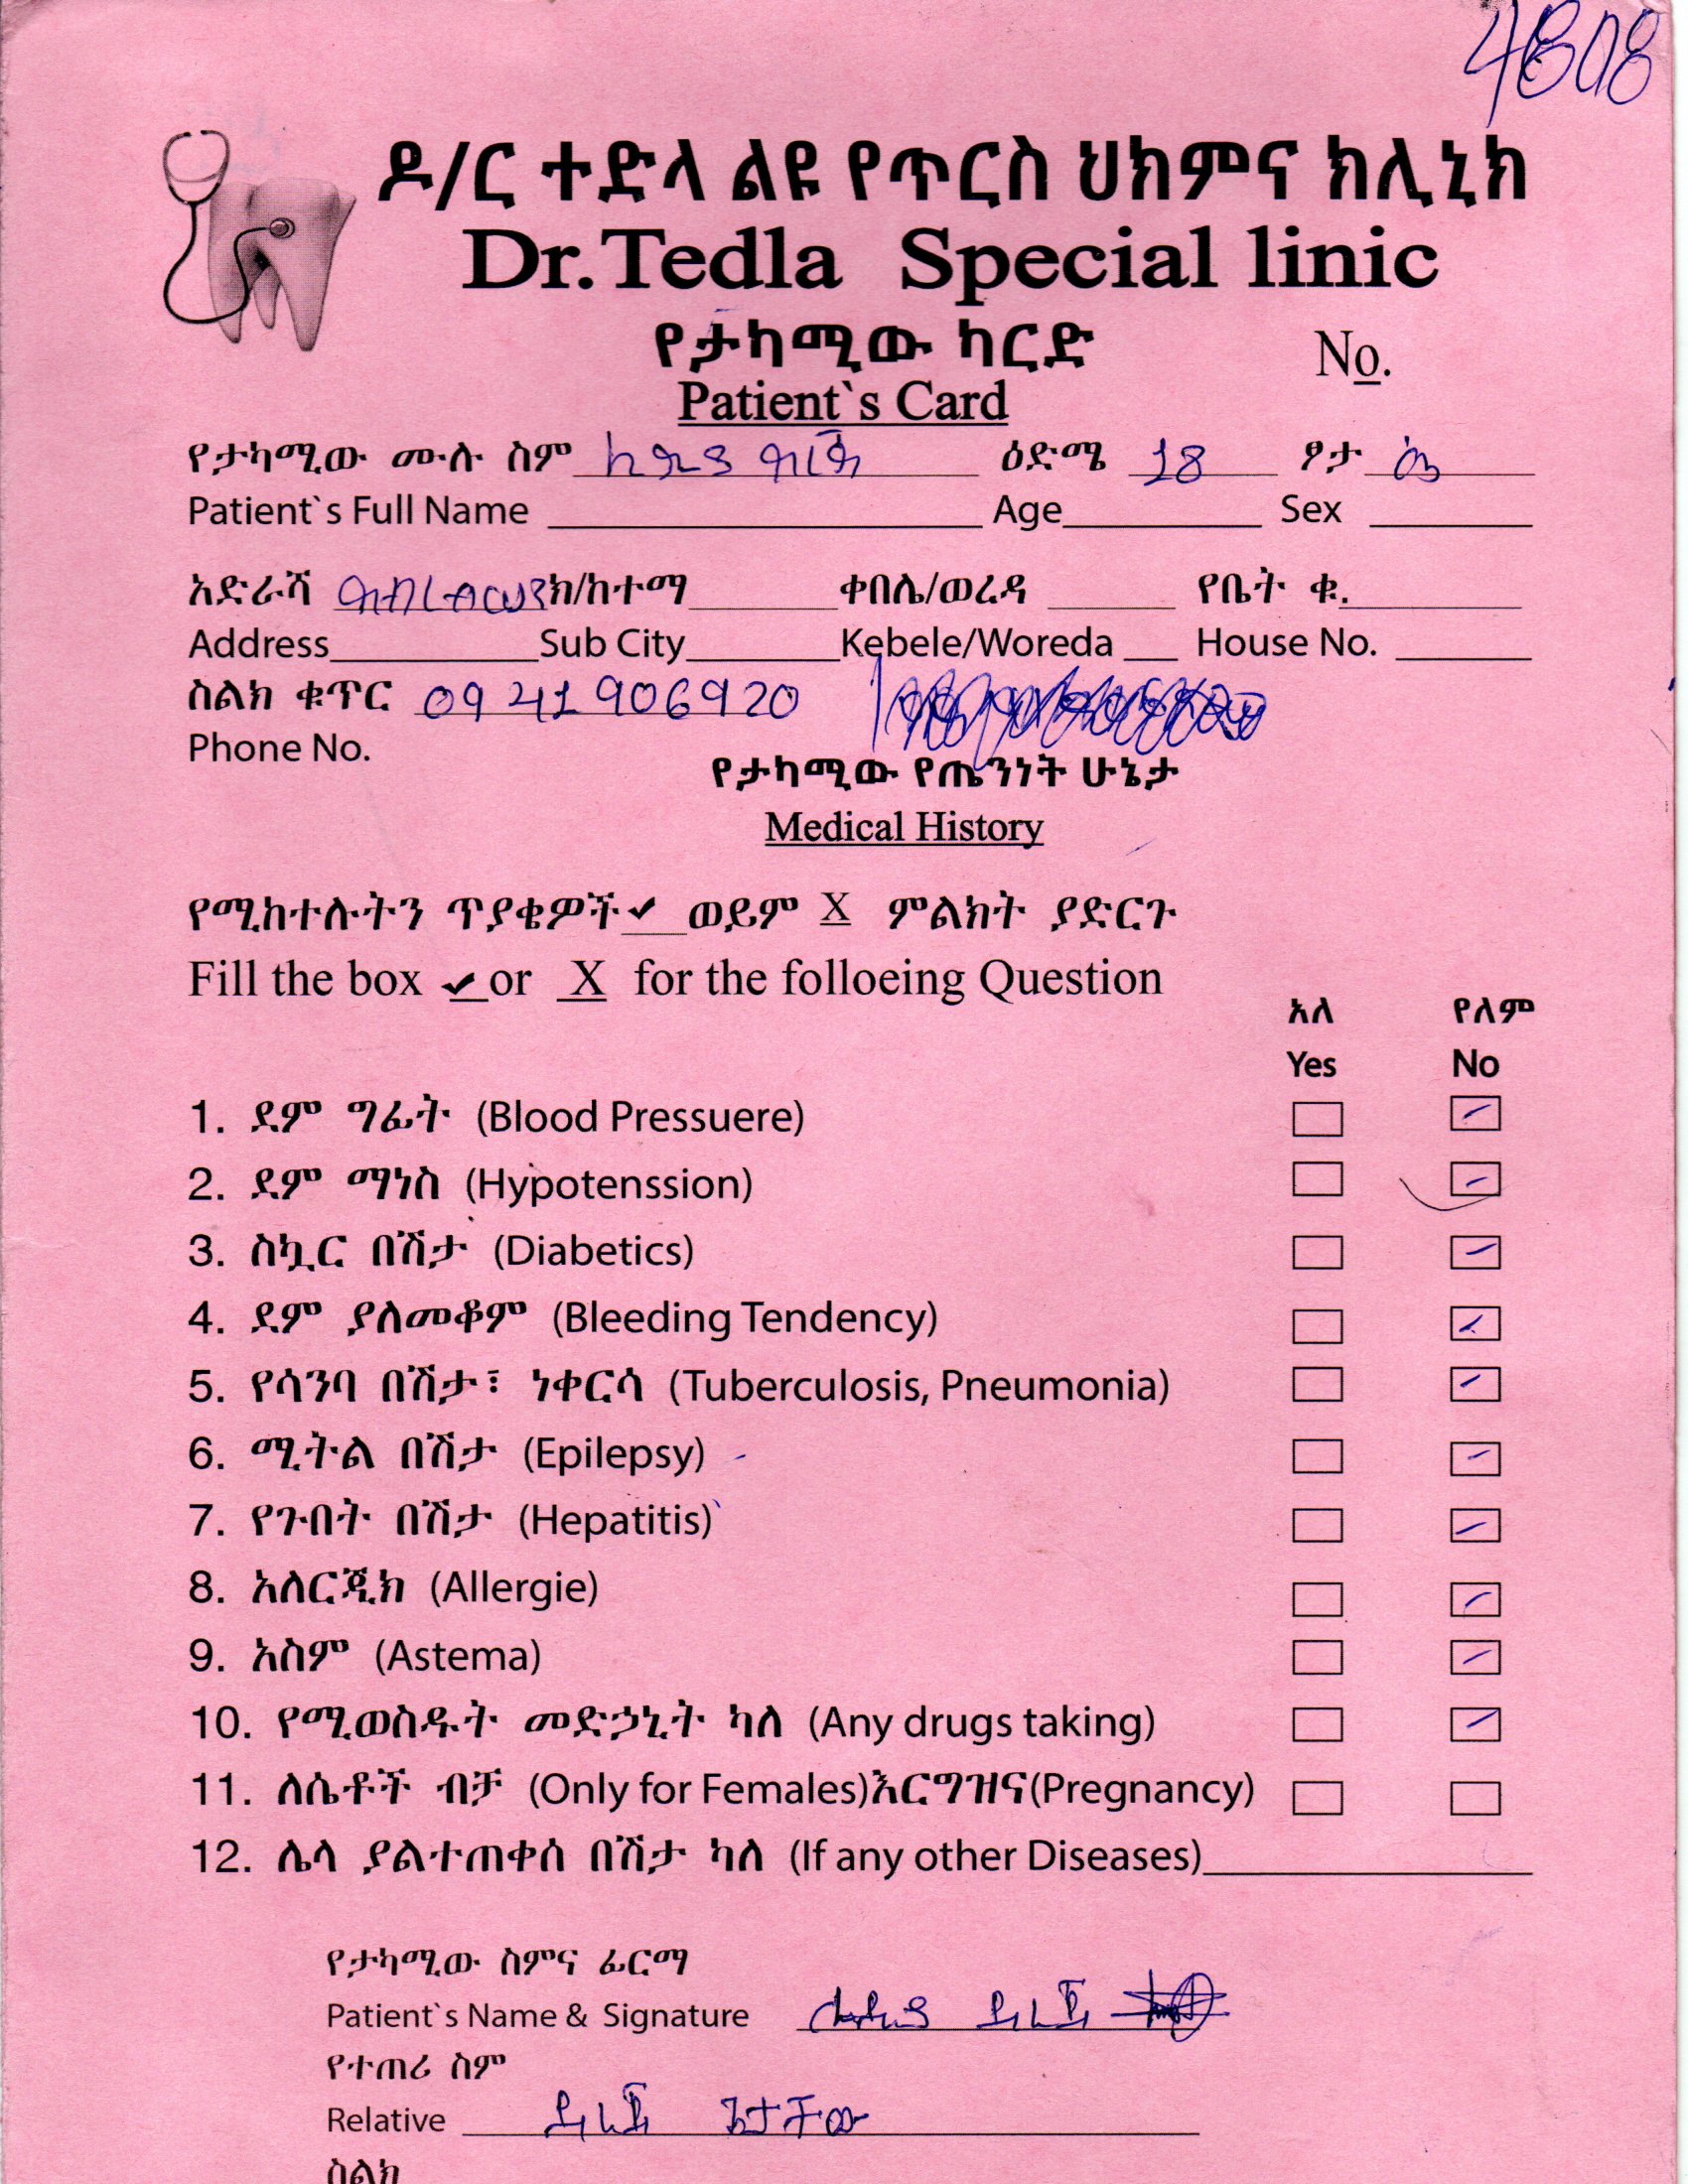 4808
ዶ/ር ተድላ ልዩ የጥርስ ህክምና ክሊኒክ
Dr.Tedla Special linic
የታካሚው ካርድ
No.
Patient`s Card
የታካሚው ሙሉ ስም ዕድሜ 18 ፆታ
Patient`s Full Name Age Sex
አድራሻ ክ/ከተማ ቀበሌ/ወረዳ የቤት ቁ.
Address Sub City Kebele/Woreda House No.
ስልክ ቁጥር 0941906920
Phone No.
የታካሚው የጤንነት ሁኔታ
Medical History
የሚከተሉትን ጥያቄዎች ✓ ወይም X ምልክት ያድርጉ
Fill the box ✓ or X for the folloeing Question
አለ የለም
Yes No
1. ደም ግፊት (Blood Pressuere)
2. ደም ማነስ (Hypotenssion)
3. ስኳር በሽታ (Diabetics)
4. ደም ያለመቆም (Bleeding Tendency)
5. የሳንባ በሽታ፣ ነቀርሳ (Tuberculosis, Pneumonia)
6. ሚትል በሽታ (Epilepsy)
7. የጉበት በሽታ (Hepatitis)
8. አለርጂክ (Allergie)
9. አስም (Astema)
10. የሚወስዱት መድኃኒት ካለ (Any drugs taking)
11. ለሴቶች ብቻ (Only for Females)እርግዝና(Pregnancy)
12. ሌላ ያልተጠቀሰ በሽታ ካለ (If any other Diseases)
የታካሚው ስምና ፊርማ
Patient`s Name & Signature ደረጄ
የተጠሪ ስም
Relative ደረጄ ጌታቸው
ስልክ